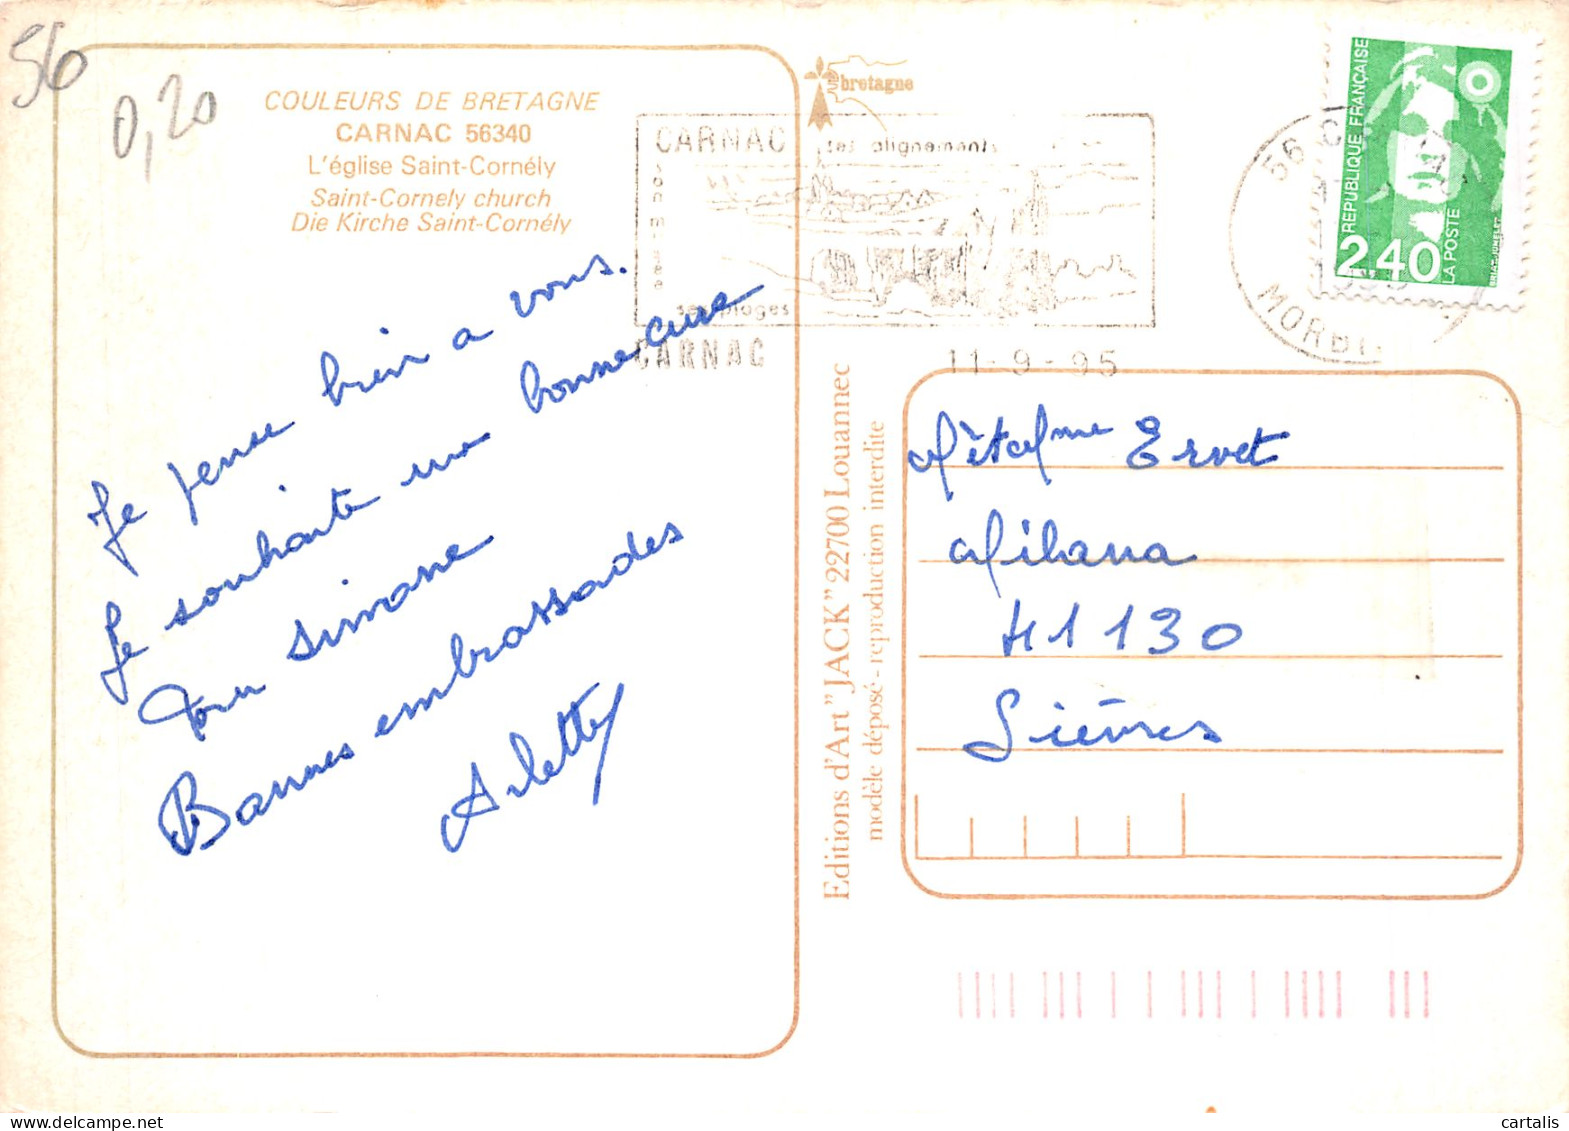 56
0,20
COULEURS DE BRETAGNE
CARNAC 56340
L'église Saint-Cornély
Saint-Cornely church
Die Kirche Saint-Cornély
Je pense bien a vous.
Je souhaite une bonne cure
Bonnes embrassades
Arletty
bretagne
CARNAC
ses alignements
ses plages
CARNAC
11-9-95
56 C
MORBI
REPUBLIQUE FRANÇAISE
2,40
LA POSTE
Editions d'Art "JACK" 22700 Louannec
modèle déposé - reproduction interdite
M et Mme Ervet
41130
cartalis